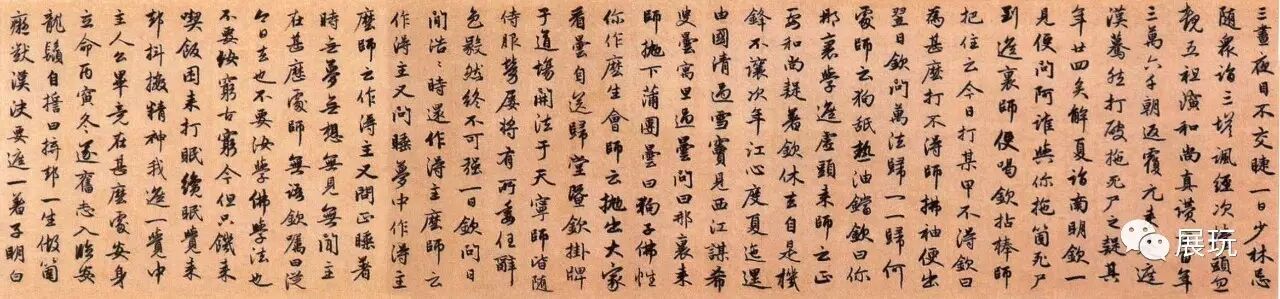 三晝夜目不交睫一日少林忌
隨衆詣三塔諷經次擡頭忽
覩五祖演和尚真讃百年
三萬六千朝返覆元来是遮
漢驀然打破拖死尸之疑其
年廿四矣解夏詣南明欽一
見便問阿誰與你拖箇死尸
到遮裏師便喝欽拈棒師
把住云今日打某甲不得欽曰
為甚麼打不得師拂袖便出
翌日欽問萬法歸一一歸何
處師云狗舐熱油鐺欽曰你
那裏學遮虛頭来師云正
要和尚疑著欽休去自是機
鋒不讓次年江心度夏迤邐
由國清過雪竇見西江謀希
叟曇寓里過曇問曰那裏来
師拋下蒲團曇曰狗子佛性
你作麼生會師云拋出大家
看曇自送歸堂暨欽掛牌
于道場開法于天寧師皆隨
侍服勞屢將有所委任辭
色毅然終不可強一日欽問日
間浩〻時還作得主麼師云
作得主又問睡夢中作得主
麼師云作得主又問正睡著
時無夢無想無見無聞主
在甚麼處師無語欽囑曰從
今日去也不要汝學佛學法也
不要汝窮古窮今但只饑来
喫飯困来打眠纔眠覺来
却抖擻精神我遮一覺中
主人公畢竟在甚麼處安身
立命丙寅冬遂奮志入臨安
龍鬚自誓曰拚却一生做箇
癡獃漢決要遮一著子明白
展玩